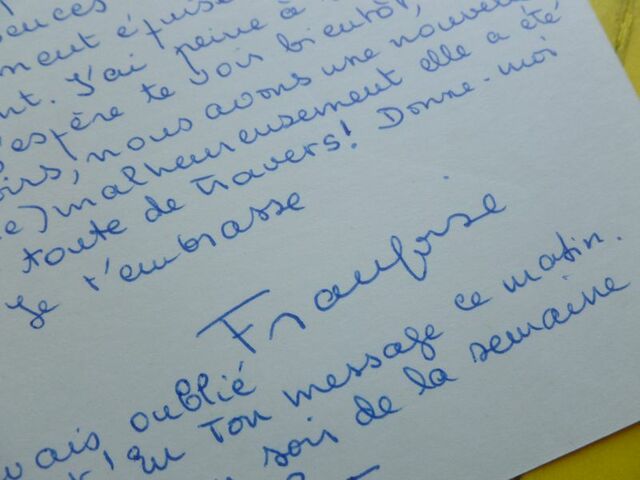 épuisé
nt. J'ai peine à
espère te vois bientôt,
oirs, nous avons une nouvelle
e) malheureusement elle a été
toute de travers! Donne-moi
Je t'embrasse
Françoise
vais oublié
eu ton message ce matin.
soir de la semaine